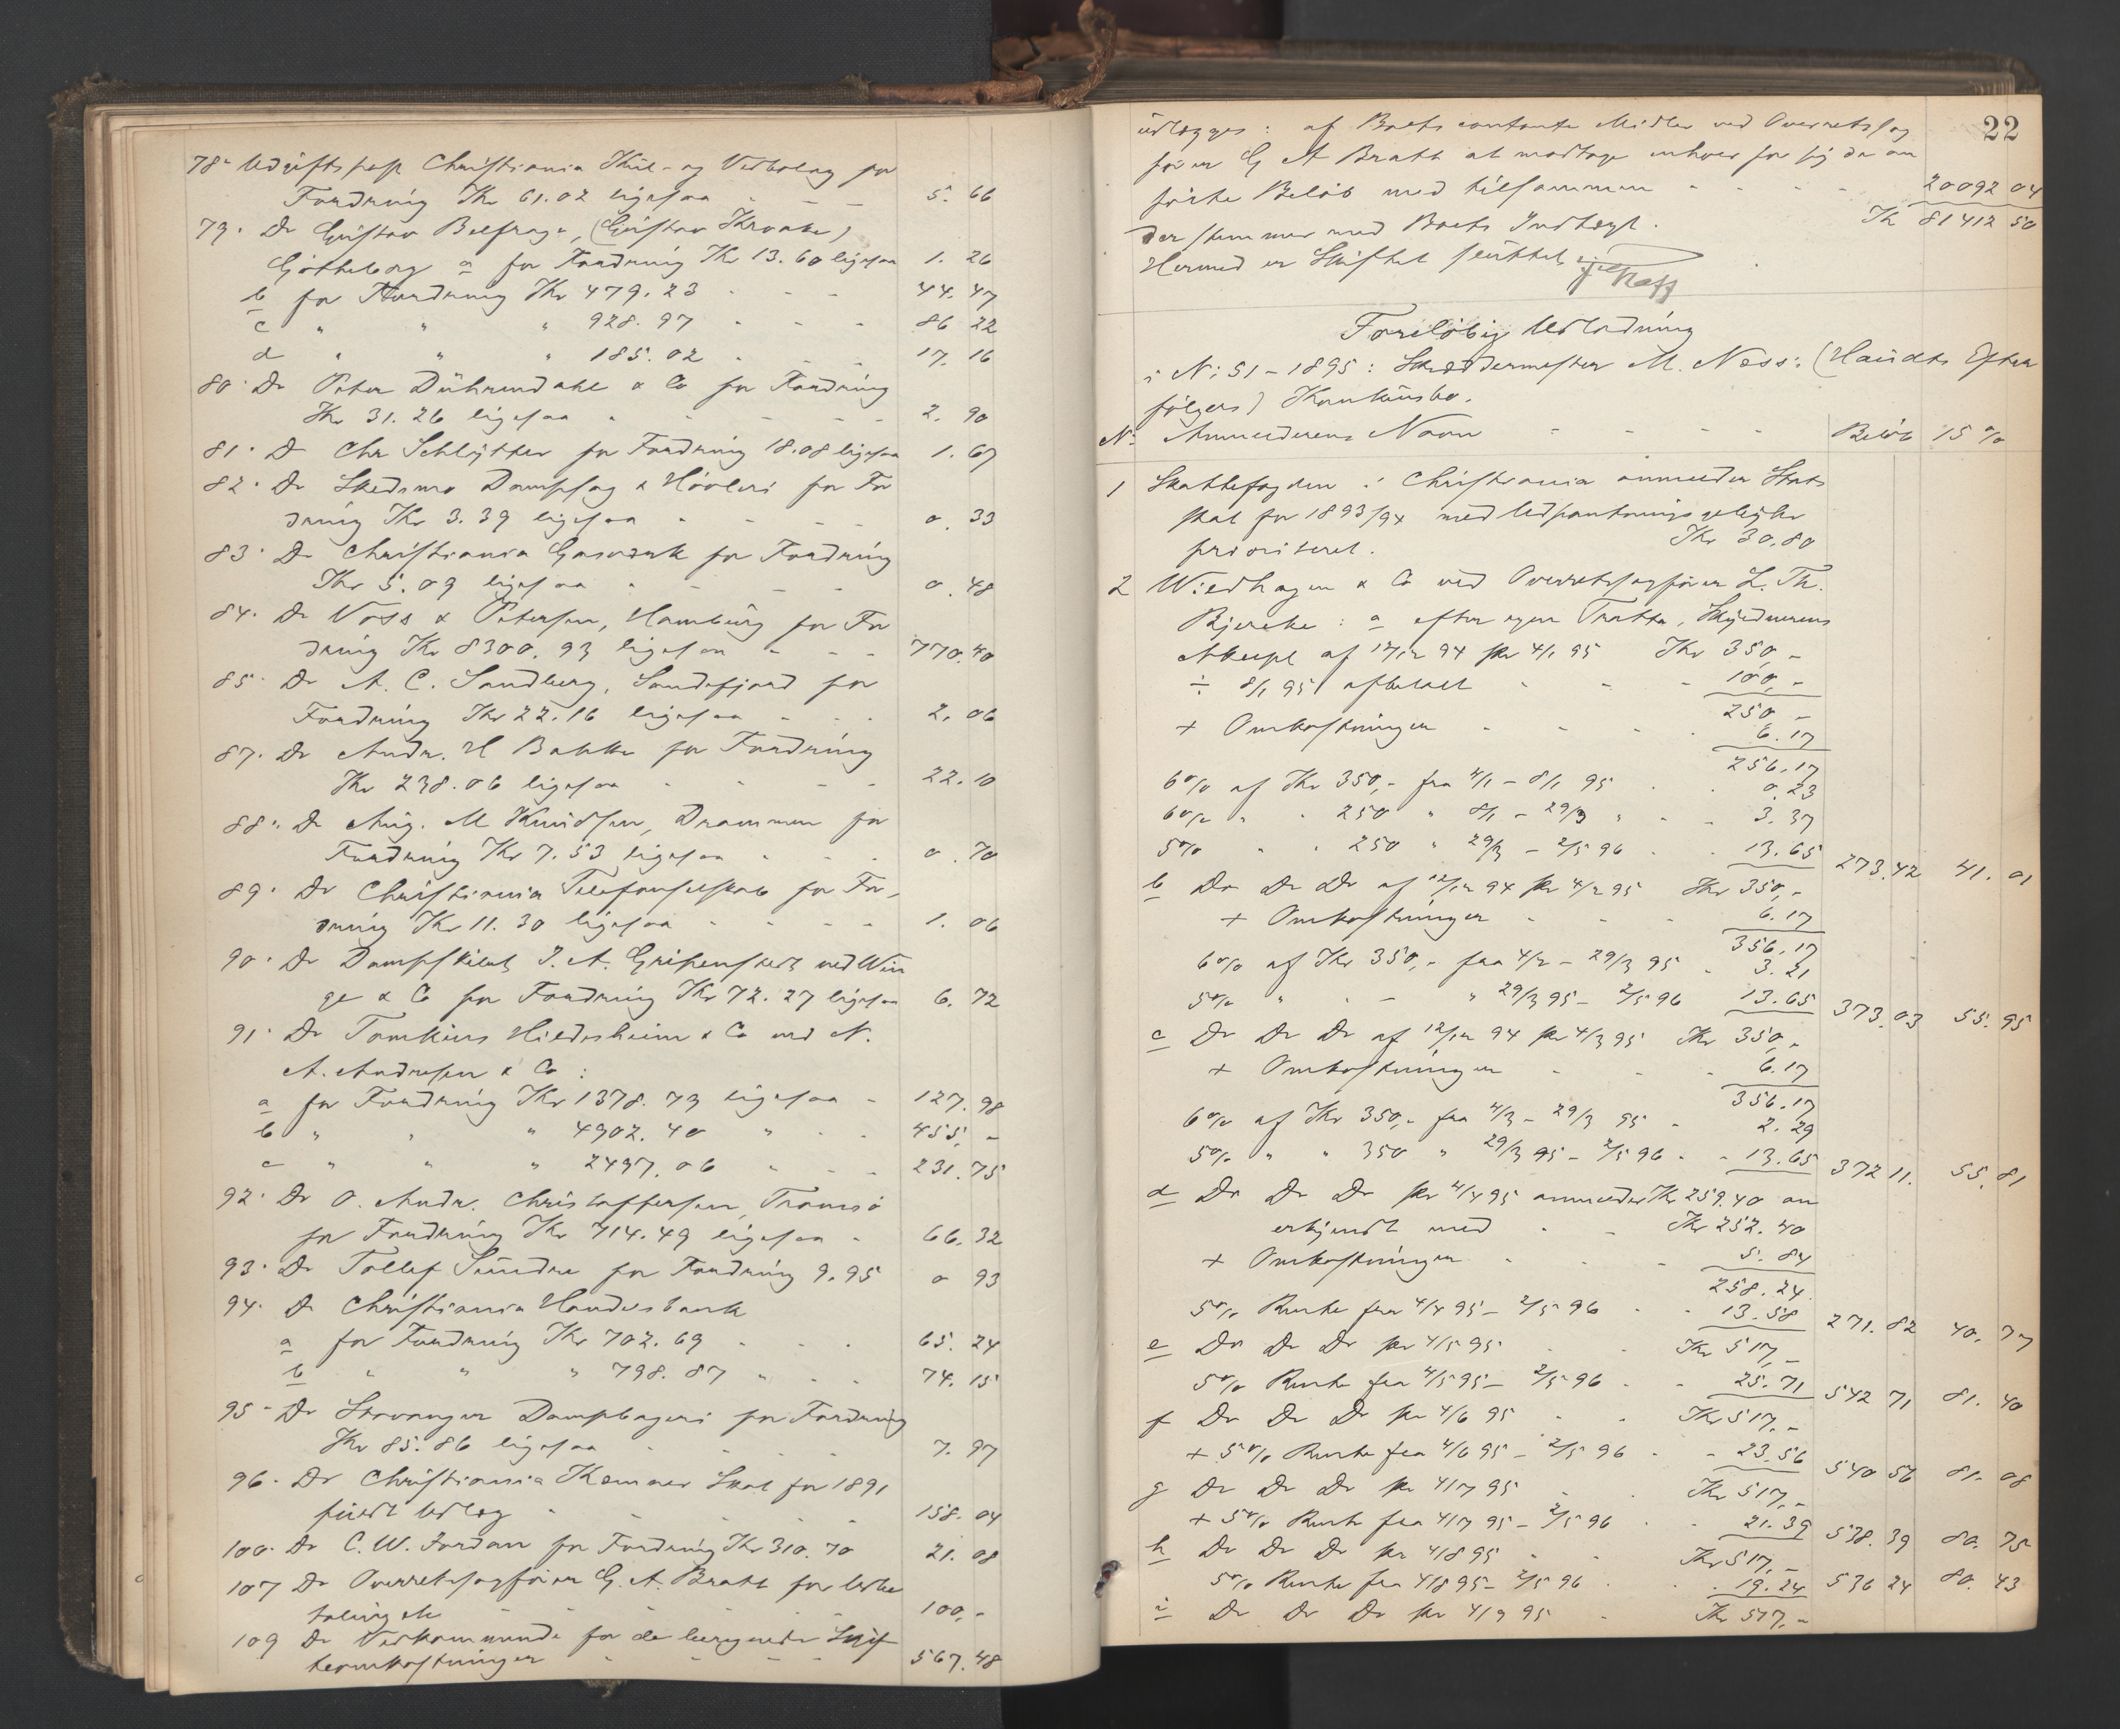 78. Udgiftspost Christiania Kul- og Vedbolag for
Fordring Kr 61.02 ligesaa - - - 5. 66
79. Do Gustav Belfrage, (Gustav Krooke)
Gøtheborg a for Fordring Kr 13.60 ligesaa 1. 26
b for Fordring Kr 479.23 - - - 44. 47
c " " " 928.97 - - - 86 22
d " " " 185.02 - - - 17. 16
80. Do Peter Dührendahl & Co for Fordring
Kr 31.26 ligesaa - - - - 2. 90
81. Do Chr Schlytter for Fordring 18.08 ligesaa 1. 67
82. Do Skedsmo Dampsag & Høvleri for For
dring Kr 3.39 ligesaa - - - - 0. 33
83. Do Christiania Gasværk for Fordring
Kr 5.09 ligesaa - - - - 0. 48
84. Do Voss & Petersen, Hamburg for For
dring Kr 8300.93 ligesaa - - - 770. 40
85. Do A. C. Sandberg, Sandefjord for
Fordring Kr 22.16 ligesaa - - - 2. 06
87. Do Andr. H Bakke for Fordring
Kr 238.06 ligesaa - - - - 22. 10
88. Do Aug. M Knudsen, Drammen for
Fordring Kr 7.53 ligesaa - - - 0. 70
89. Do Christiania Telefonselskab for For-
dring Kr 11.30 ligesaa - - - - 1. 06
90. Do Dampskibet J. A. Gripenstedt ved Win
ge & Co for Fordring Kr 72.27 ligesaa 6. 72
91. Do Tomkins Hildesheim & Co ved N.
A. Andresen & Co :
a for Fordring Kr 1378.73 ligesaa - 127. 98
b " " " 4902.40 " - - 455, -
c " " " 2497.06 " - - 231. 75
92. Do O. Andr. Christoffersen, Tromsø
for Fordring Kr 714.49 ligesaa - 66. 32
93. Do Tollef Sundre for Fordring 9.95 0 93
94. Do Christiania Handelsbank
a for Fordring Kr 702.69 - - - 65. 24
b " " " 798.87 " - - 74. 15
95. Do Stavanger Dampbageri for Fordring
Kr 85.86 ligesaa - - - - 7. 97
96. Do Christiania Kemner Skat for 1891
fuldt Udlæg - - - - - 158. 04
100. Do C. W. Jordan for Fordring Kr 310.70 21. 08
107 Do Overretssagfører G. A. Bratt for Udbe
taling etc - - - - - 100, -
109 Do Vedkommende for de beregnede Skif
teomkostninger - - - - 567. 48
22
udlægges : af Boets contante Midler ved Overretssag
fører G A Bratt at modtage enhver for sig de an
førte Beløb med tilsammen - - - - 20092 04
der stemmer med Boets Indtægt. Kr 81412 50
Hermed er Skiftet sluttet.
Foreløbig Udlodning
i No 51 - 1895 : Skræddermester M. Næss: (Haudts Efter
følgers) Konkursbo.
No Anmelderens Navn - - - - Beløb 15 %
1 Skattefogden i Christiania anmelder Stats
skat for 1893/94 med Udpantningsgebyhr
prioriteret. Kr 30,80
2 Wiedhagen & Co ved Overretssagfører L. Th.
Bjercke : a efter egen Tratte, Skyldnerens
Accept af 17/12 94 pr 4/1 95 Kr 350, -
÷ 8/1 95 afbetalt - - - 100, -
250, -
+ Omkostninger - - - - 6.17
256,17
6% af Kr 350,- fra 4/1 - 8/1 95 - - 0.23
6% " " 250 " 8/1 - 29/3 " - - 3.37
5% " " 250 " 29/3 - 2/5 96 - - 13.65 273.42 41. 01
b Do Do Do af 12/12 94 pr 4/2 95 Kr 350, -
+ Omkostninger - - - 6.17
356,17
6% af Kr 350,- fra 4/2 - 29/3 95 - 3.21
5% " " - " 29/3 95 - 2/5 96 13.65 373.03 55. 95
c Do Do Do af 12/12 94 pr 4/3 95 Kr 350, -
+ Omkostninger - - - 6.17
356.17
6% af Kr 350,- fra 4/3 - 29/3 95 - 2.29
5% " " 350 " 29/3 95 - 2/5 96 - - 13.65 372 11. 55. 81
d Do Do Do pr 4/4 95 anmeldes Kr 259.40 an
erkjendt med - - Kr 252.40
+ Omkostninger - - - 5.84
258.24
5% Rente fra 4/4 95 - 2/5 96 - - 13.58 271.82 40. 77
e Do Do Do pr 4/5 95 - - Kr 517, -
5% Rente fra 4/5 95 - 2/5 96 - - 25.71 542 71 81. 40
f Do Do Do pr 4/6 95 - - Kr 517, -
+ 5% Rente fra 4/6 95 - 2/5 96 - - 23.56 540 56 81. 08
g Do Do Do pr 4/7 95 - - Kr 517, -
+ 5% Rente fra 4/7 95 - 2/5 96 - - 21.39 538.39 80. 75
h Do Do Do pr 4/8 95 - - Kr 517, -
5% Rente fra 4/8 95 - 2/5 96 - - 19.24 536 24 80. 43
i Do Do Do pr 4/9 95 - Kr 517, -